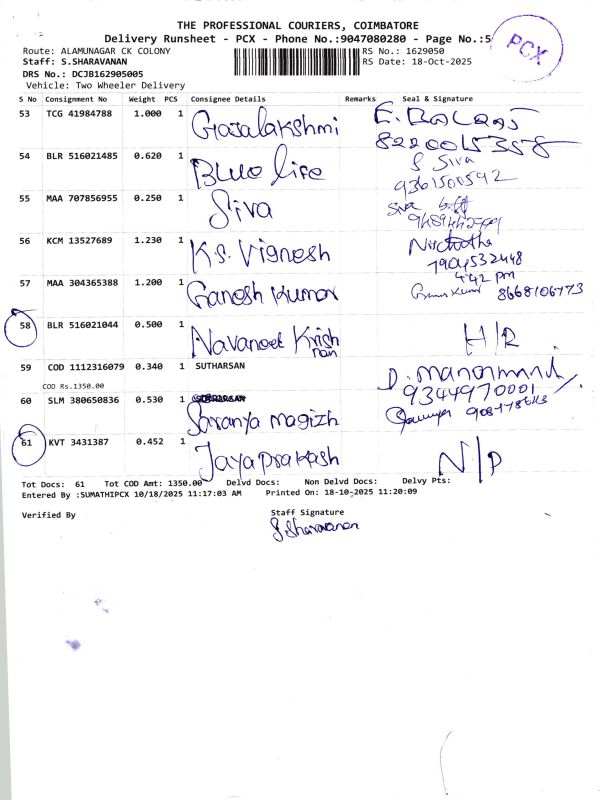 THE PROFESSIONAL COURIERS, COIMBATORE
Delivery Runsheet - PCX - Phone No.:9047080280 - Page No.:5
PCX
Route: ALAMUNAGAR CK COLONY RS No.: 1629050
Staff: S.SHARAVANAN RS Date: 18-Oct-2025
DRS No.: DCJB162905005
Vehicle: Two Wheeler Delivery
S No Consignment No Weight PCS Consignee Details Remarks Seal & Signature
53 TCG 41984788 1.000 1 Gajalakshmi E. BALAAJ
8220015358
54 BLR 516021485 0.620 1 Blue life S Siva
9361501592
55 MAA 707856955 0.250 1 Siva Siva
56 KCM 13527689 1.230 1 K.S. Vignesh
7904532448
4:42 pm
57 MAA 304365388 1.200 1 Ganesh Kumar 8668106773
58 BLR 516021044 0.500 1 Navaneet Krish
nan H/R
59 COD 1112316079 0.340 1 SUTHARSAN D. Manormani
COD Rs.1350.00 9344970001
60 SLM 380650836 0.530 1 Saranya magizh
61 KVT 3431387 0.452 1 Jayaprakash N/P
Tot Docs: 61 Tot COD Amt: 1350.00 Delvd Docs: Non Delvd Docs: Delvy Pts:
Entered By :SUMATHIPCX 10/18/2025 11:17:03 AM Printed On: 18-10-2025 11:20:09
Verified By Staff Signature
S.Sharavanan